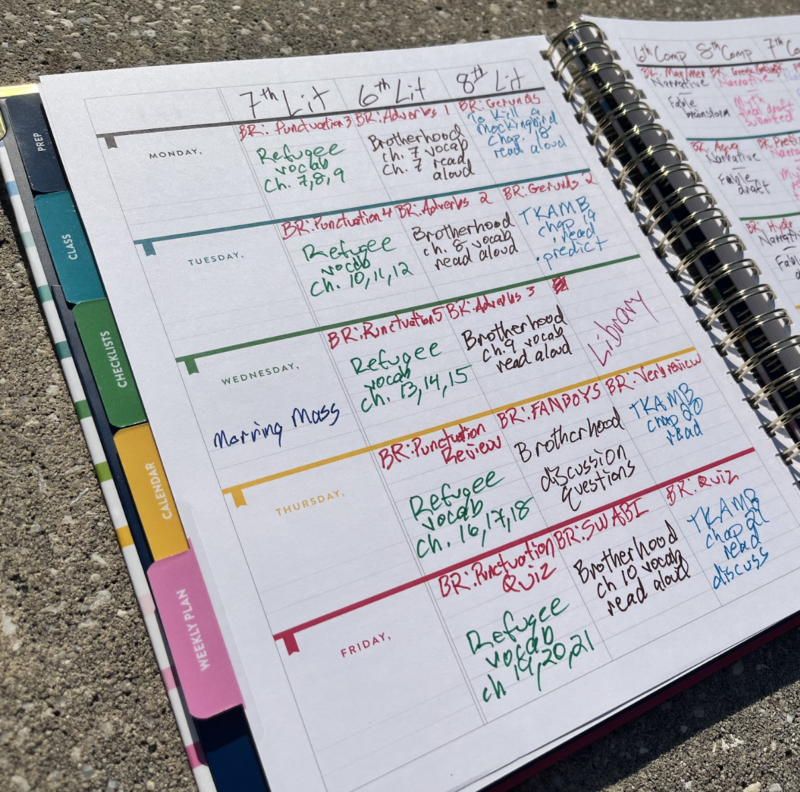 7th Lit 6th Lit 8th Lit
MONDAY,
BR: Punctuation 3
Refugee
vocab
ch. 7,8,9
BR: Adverbs 1
Brotherhood
ch. 7 vocab
ch. 7 read
aloud
BR: Gerunds
To Kill a
Mockingbird
Chap. 18
read aloud
TUESDAY,
BR: Punctuation 4
Refugee
vocab
ch. 10, 11, 12
BR: Adverbs 2
Brotherhood
ch. 8 vocab
read aloud
BR: Gerunds 2
TKAMB
chap 19
read
predict
WEDNESDAY,
Morning Mass
BR: Punctuation 5
Refugee
vocab
ch. 13, 14, 15
BR: Adverbs 3
Brotherhood
ch. 9 vocab
read aloud
Library
THURSDAY,
BR: Punctuation
Review
Refugee
vocab
ch. 16, 17, 18
BR: FANBOYS
Brotherhood
discussion
questions
BR: Verb review
TKAMB
chap 20
read
FRIDAY,
BR: Punctuation
Quiz
Refugee
vocab
ch 19, 20, 21
BR: SWABI
Brotherhood
ch 10 vocab
read aloud
BR: Quiz
TKAMB
chap 21
read
discuss
PREP
CLASS
CHECKLISTS
CALENDAR
WEEKLY PLAN
6th Comp 8th Comp 7th
Narrative
Fable
brainstorm
final draft
Narrative
Fable
draft
Narrative